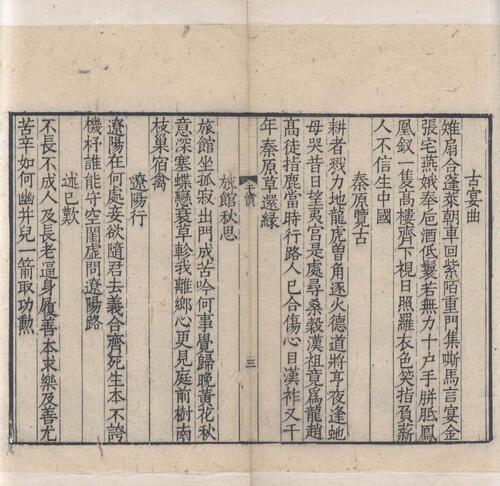 古宴曲
雉扇合蓬萊朝車回紫陌重門集嘶馬言宴金
張宅燕娥奉卮酒低鬟若無力十戶手胼胝鳳
凰釵一隻高樓齊下視日照羅衣色笑指負薪
人不信生中國
秦原覽古
耕者戮力地龍虎曾角逐火德道將亨夜逢虵
母哭昔日望夷宮是處尋桑榖漢祖竟爲龍趙
高徒指鹿當時行路人已合傷心目漢祚又千
年秦原草還綠
于濆
三
旅館秋思
旅館坐孤寂出門成苦吟何事覺歸晚黃花秋
意深塞蝶戀衰草軫我離鄉心更見庭前樹南
枝巢宿禽
遼陽行
遼陽在何處妾欲隨君去義合齊死生本不誇
機杼誰能守空閨虛問遼陽路
述已歎
不長不成人及長老逼身履善本求樂及善尤
苦辛如何幽并兒一箭取功勳